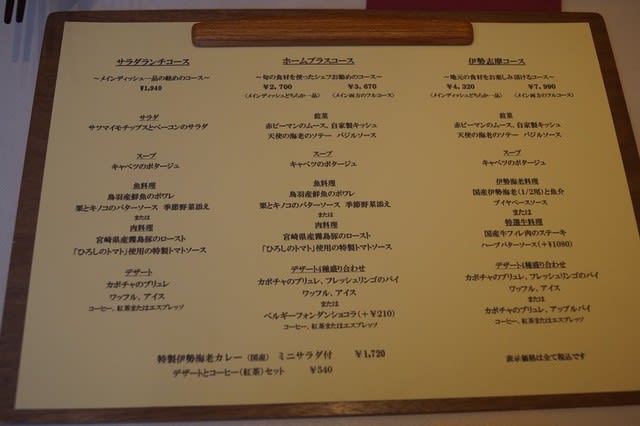 サラダランチコース
～メインディッシュ一品の軽めのコース～
¥1,940
サラダ
サツマイモチップスとベーコンのサラダ
スープ
キャベツのポタージュ
魚料理
鳥羽産鮮魚のポワレ
栗とキノコのバターソース 季節野菜添え
または
肉料理
宮崎県産霧島豚のロースト
「ひろしのトマト」使用の特製トマトソース
デザート
カボチャのブリュレ
ワッフル、アイス
コーヒー、紅茶またはエスプレッソ
ホームプラスコース
～旬の食材を使ったシェフお勧めのコース～
¥2,700 ¥3,670
(メインディッシュどちらか一品) (メイン両方のフルコース)
前菜
赤ピーマンのムース、自家製キッシュ
天使の海老のソテー バジルソース
スープ
キャベツのポタージュ
魚料理
鳥羽産鮮魚のポワレ
栗とキノコのバターソース 季節野菜添え
または
肉料理
宮崎県産霧島豚のロースト
「ひろしのトマト」使用の特製トマトソース
デザート4種盛り合わせ
カボチャのブリュレ、フレッシュリンゴのパイ
ワッフル、アイス
または
ベルギーフォンダンショコラ(+¥210)
コーヒー、紅茶またはエスプレッソ
伊勢志摩コース
～地元の食材をお楽しみ頂けるコース～
¥4,320 ¥7,990
(メインディッシュどちらか一品) (メイン両方のフルコース)
前菜
赤ピーマンのムース、自家製キッシュ
天使の海老のソテー バジルソース
スープ
キャベツのポタージュ
伊勢海老料理
国産伊勢海老(1/2尾)と魚介
ブイヤベースソース
または
特選牛料理
国産牛フィレ肉のステーキ
ハーブバターソース(+¥1080)
デザート4種盛り合わせ
カボチャのブリュレ、フレッシュリンゴのパイ
ワッフル、アイス
または
カボチャのブリュレ、アップルパイ
コーヒー、紅茶またはエスプレッソ
特製伊勢海老カレー(国産) ミニサラダ付 ¥1,720
デザートとコーヒー(紅茶)セット ¥540
表示価格は全て税込です